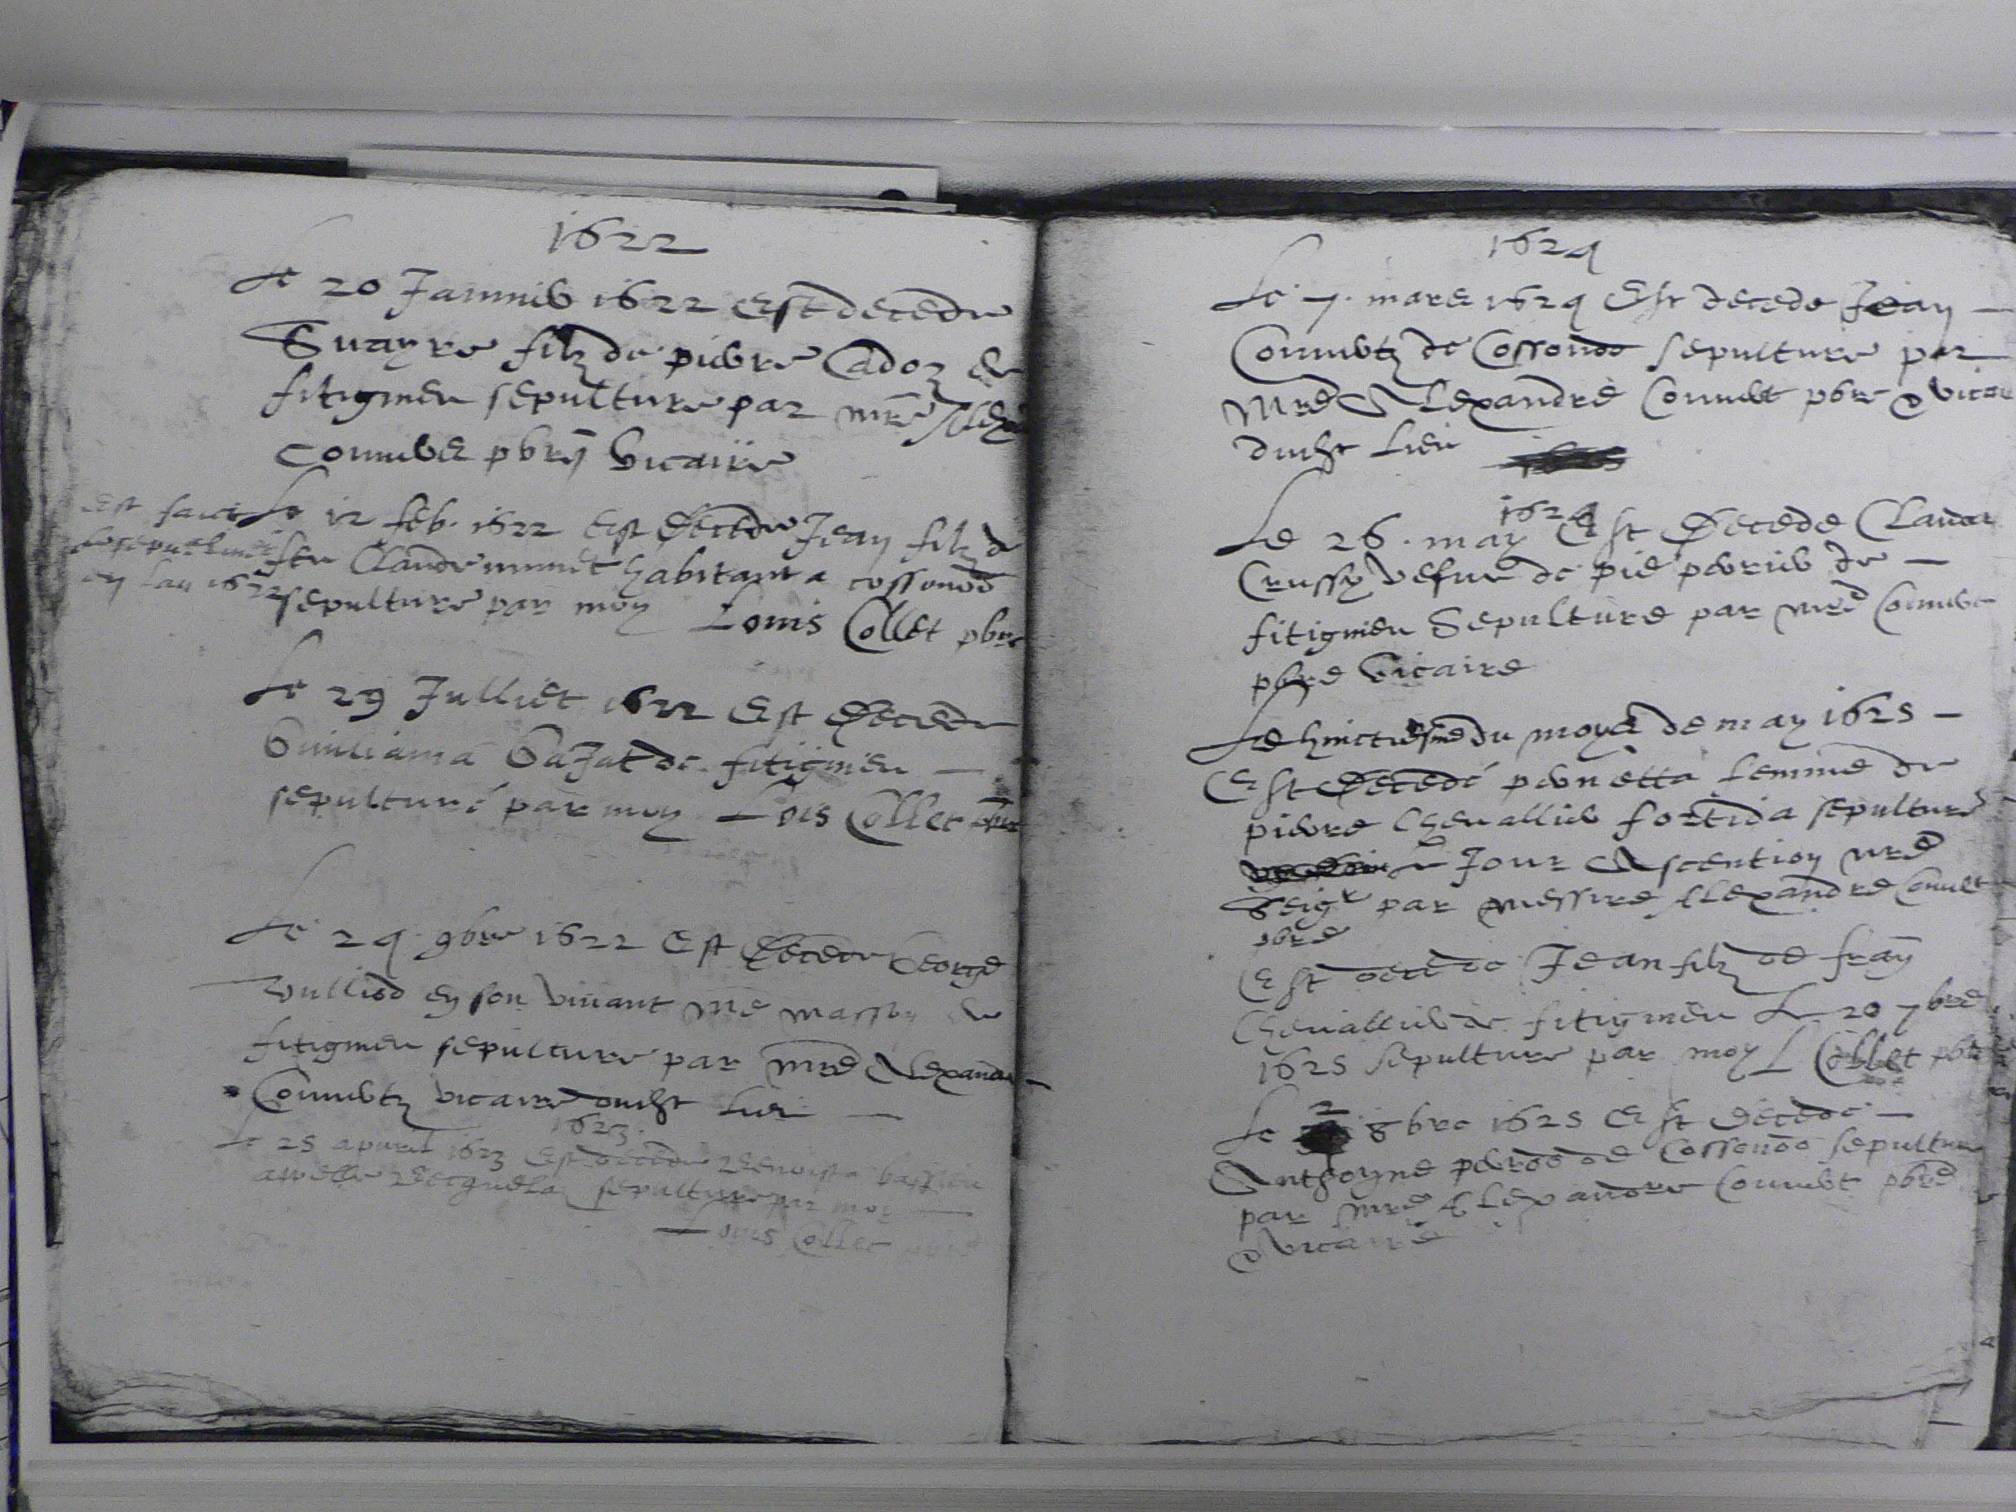 1622
Le 20 Januier 1622 Est decede
Suayre filz de pierre Cadoz de
fitignieu sepulture par mre Alexa
Conuers pbre vicaire
Est faict
la sepulture
en lan 1622
Le 12 feb. 1622 Est decede Jean filz d
feu Claude habitant a cossonod
sepulture par moy Louis Collet pbre
Le 29 Julliet 1622 Est Decede
de fitignieu
sepulture par moy Lois Collet pbre
Le 24 9bre 1622 Est Decede George
Vulliod en son viuant me masson de
fitignieu sepulture par mre Alexandre
Conuertz vicaire dudit lieu
1623
Le 25 apuril 1623 Est decede Benoista
sepulture par moy
Louis Collet pbre
1624
Le 7. mars 1624 Est decede Jean
Conuertz de Cossonod sepulture par
Mre Alexandre Conuert pbre & vicai
dudit Lieu
1624
Le 26. may Est Decede Clauda
Crussy vefue de pierre de
fitignieu Sepulture par mre Conuert
pbre Vicaire
Le huictiesme du moys de may 1625
Est Decede pernetta femme de
pierre Cheuallier sepulture
Jour Ascention nre
Seigr par messire Alexandre Conuert
pbre
Est decede Jean filz de fran
Cheuallier de fitignieu Le 20 7bre
1625 sepulture par moy L Collet pbre
Le 2 8bre 1625 Est decede
Anthoyne de Cossonod sepulture
par mre Alexandre Conuert pbre
& vicaire